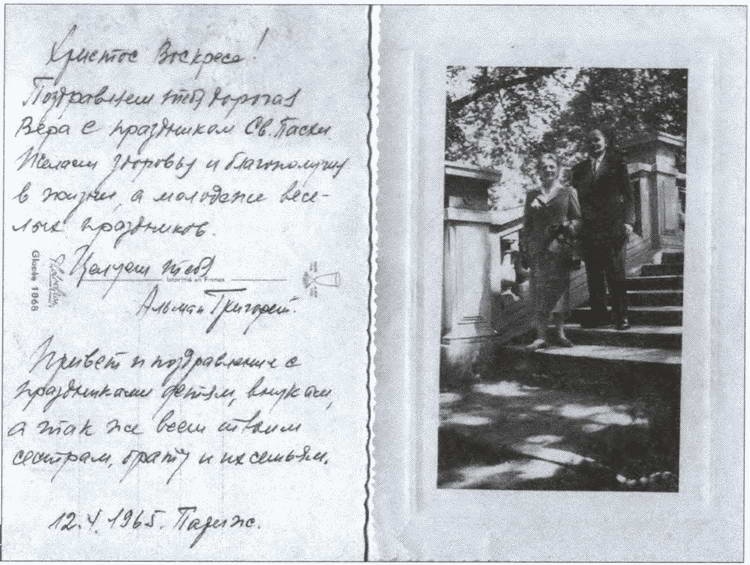 Христос Воскресе!
Поздравляем тебя дорогая
Вера с праздником Св. Пасхи.
Желаем здоровья и благополучия
в жизни, а молодежи весе-
лых праздников.
Целуем тебя
Imprimé en France
Glacés 1868
Григорий.
Привет и поздравление с
праздниками детям, внукам,
а так же всем твоим
сестрам, брату и их семьям.
1965. Париж.